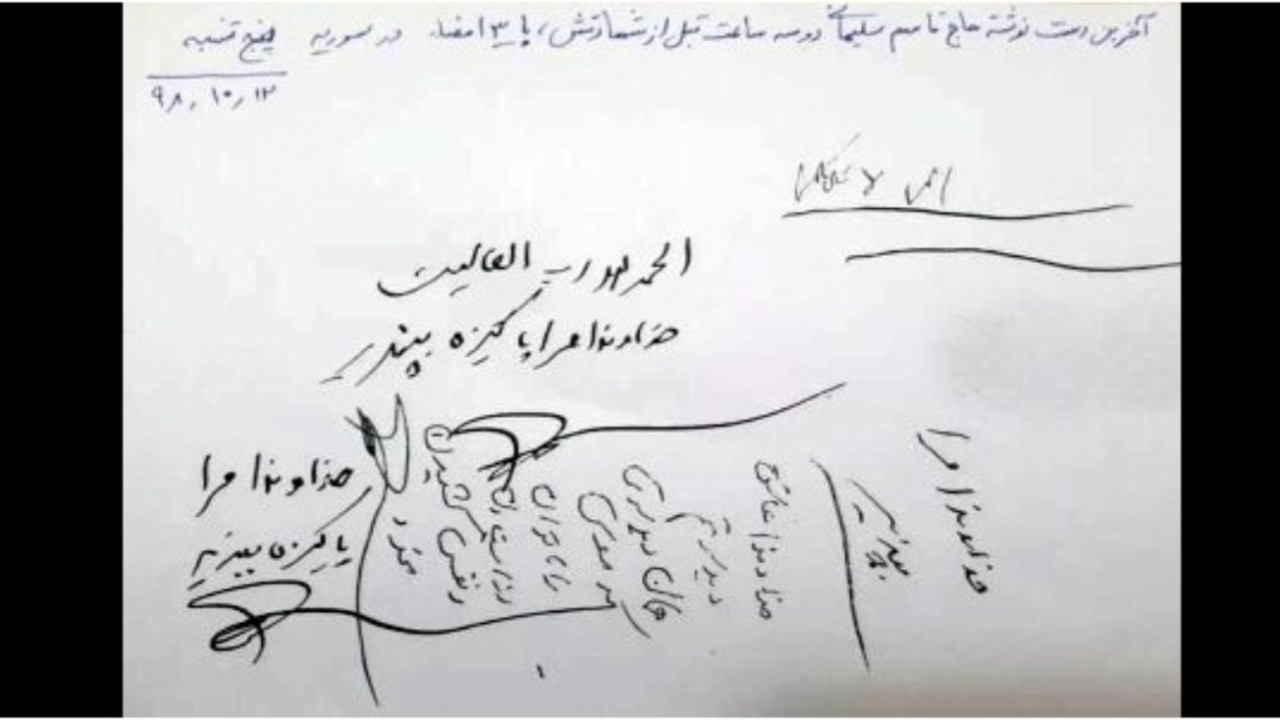 آخرین دست نوشته حاج قاسم سلیمانی دو سه ساعت قبل از شهادتش، با ۳ امضاء در سوریه پنج شنبه
۹۸/۱۰/۱۲
الهی لا تکلنی
الحمدلله رب العالمین
خداوندا مرا پاکیزه بپذیر
خداوندا مرا
بپذیر
خداوندا عاشق
دیدارتم
همان دیداری
که موسی
را ناتوان
از ایستادن
و نفس کشیدن
نمود
خداوندا مرا
پاکیزه بپذیر